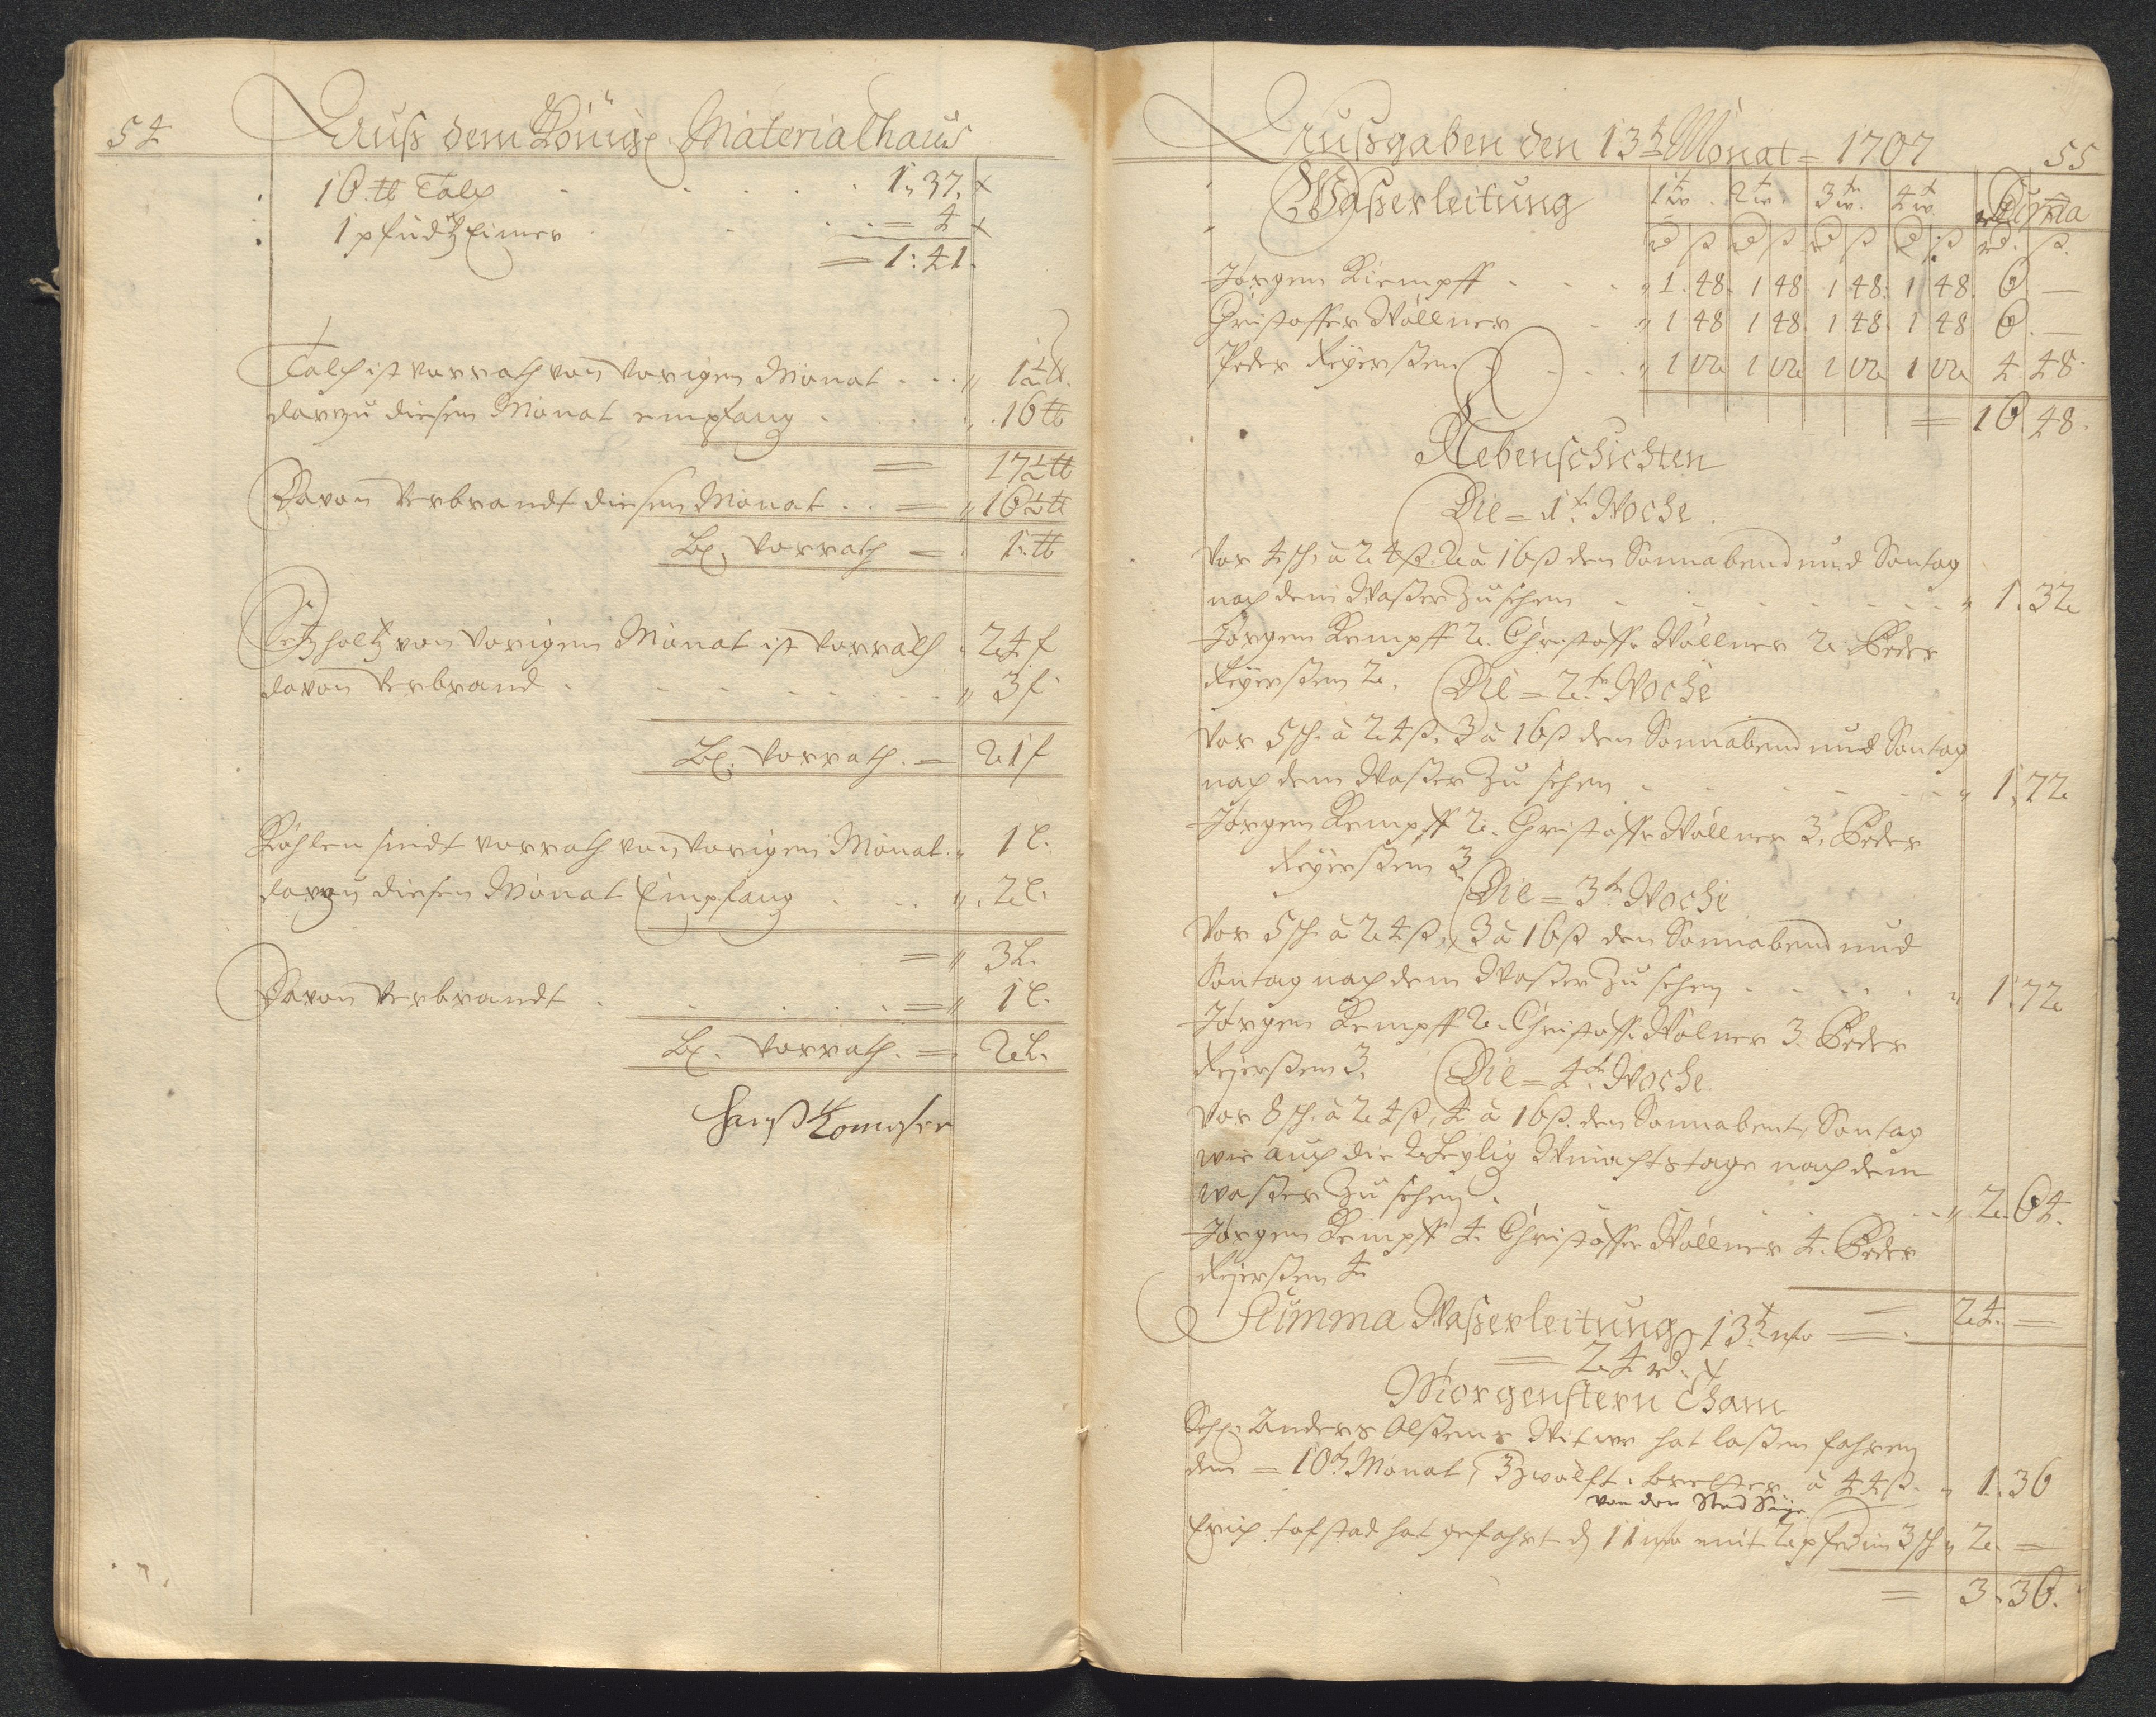 54 Auß dem Königl Materialhauß
16 ℔ Talch . . . . 1 „ 37. x
1 pfudtz Eimer . . . = 4 x
= 1: 41.
Talch ist vorrath von vorigen Monat . . . „ 1½ ℔.
darzu diesen Monat empfang . . . „ 16 ℔
= 17½ ℔
Davon verbrandt diesen Monat . . = „ 16½ ℔
Bl. vorrath = 1. ℔
Setzholtz von vorigen Monat ist vorrath „ 24 f
davon verbrand . . . . „ 3 f.
Bl. vorrath. = 21 f
Kohlen sindt vorrath von vorigen Monat. „ 1 l.
darzu diesen Monat Empfang . . . „ 2 l.
= „ 3 l.
Davon verbrandt . . . . = „ 1 l.
Bl. vorrath. = 2 l.
Hanß
Außgaben den 13t Monat = 1707 55
Waßerleitung 1t w. 2t w. 3t w. 4t w. Summa
rd ß rd ß rd ß rd ß rd. ß.
Jörgen Kiempff . . . „ 1. 48. 1 48. 1 48. 1 48. 6 —
Christoffer Wöllner . „ 1 48 1 48. 1. 48. 1 48 6. —
Peder Reyerßen . . . „ 1 12 1 12 1 12 1 12 4. 48.
= 16 48.
Nebenschichten
Die = 1t. Woche.
Vor 4 sch. à 24 ß. 2 à 16 ß den Sonnabend und Sontag
nach dem Waßer zu sehen . . . . „ 1. 32
Jörgen Kempff 2. Christoff. Wöllner 2. Peder
Reyerßen 2. Die = 2t. Woche
Vor 5 sch. à 24 ß. 3 à 16 ß den Sonnabend und Sontag
nach dem Waßer zu sehen . . . . „ 1. 72
Jörgen Kempff 2. Christoffr Wöllner 3. Peder
Reyerßen 3. Die = 3t. Woche
Vor 5 sch. à 24 ß, 3 à 16 ß den Sonnabend und
Sontag nach dem Waßer zu sehen . . . . „ 1. 72
Jörgen Kempff 2. Christoff. Wölner 3. Peder
Reyerßen 3. Die = 4t. Woche.
Vor 8 sch. à 24 ß, 4 à 16 ß. den Sonnabent, Sontag
wie auch die 2 Heylig Weinachtstage nach dem
waßer zu sehen . . . . „ 2. 64.
Jörgen Kempff 4. Christoffer Wöllner 4. Peder
Reyerßen 4
Summa Waßerleitung 13t mo = 24. =
= 24 rd. x
Morgenstern Tham
Sehl. Anders Olßens Witwe hat laßen fahren
den = 10t Monat, 3 zwölft. bretter à 44 ß. „ 1. 36
von der
Erich tofstad hat gefahrt d 11 mo mit 2 pferd in 3 sch „ 2. =
= 3. 36.